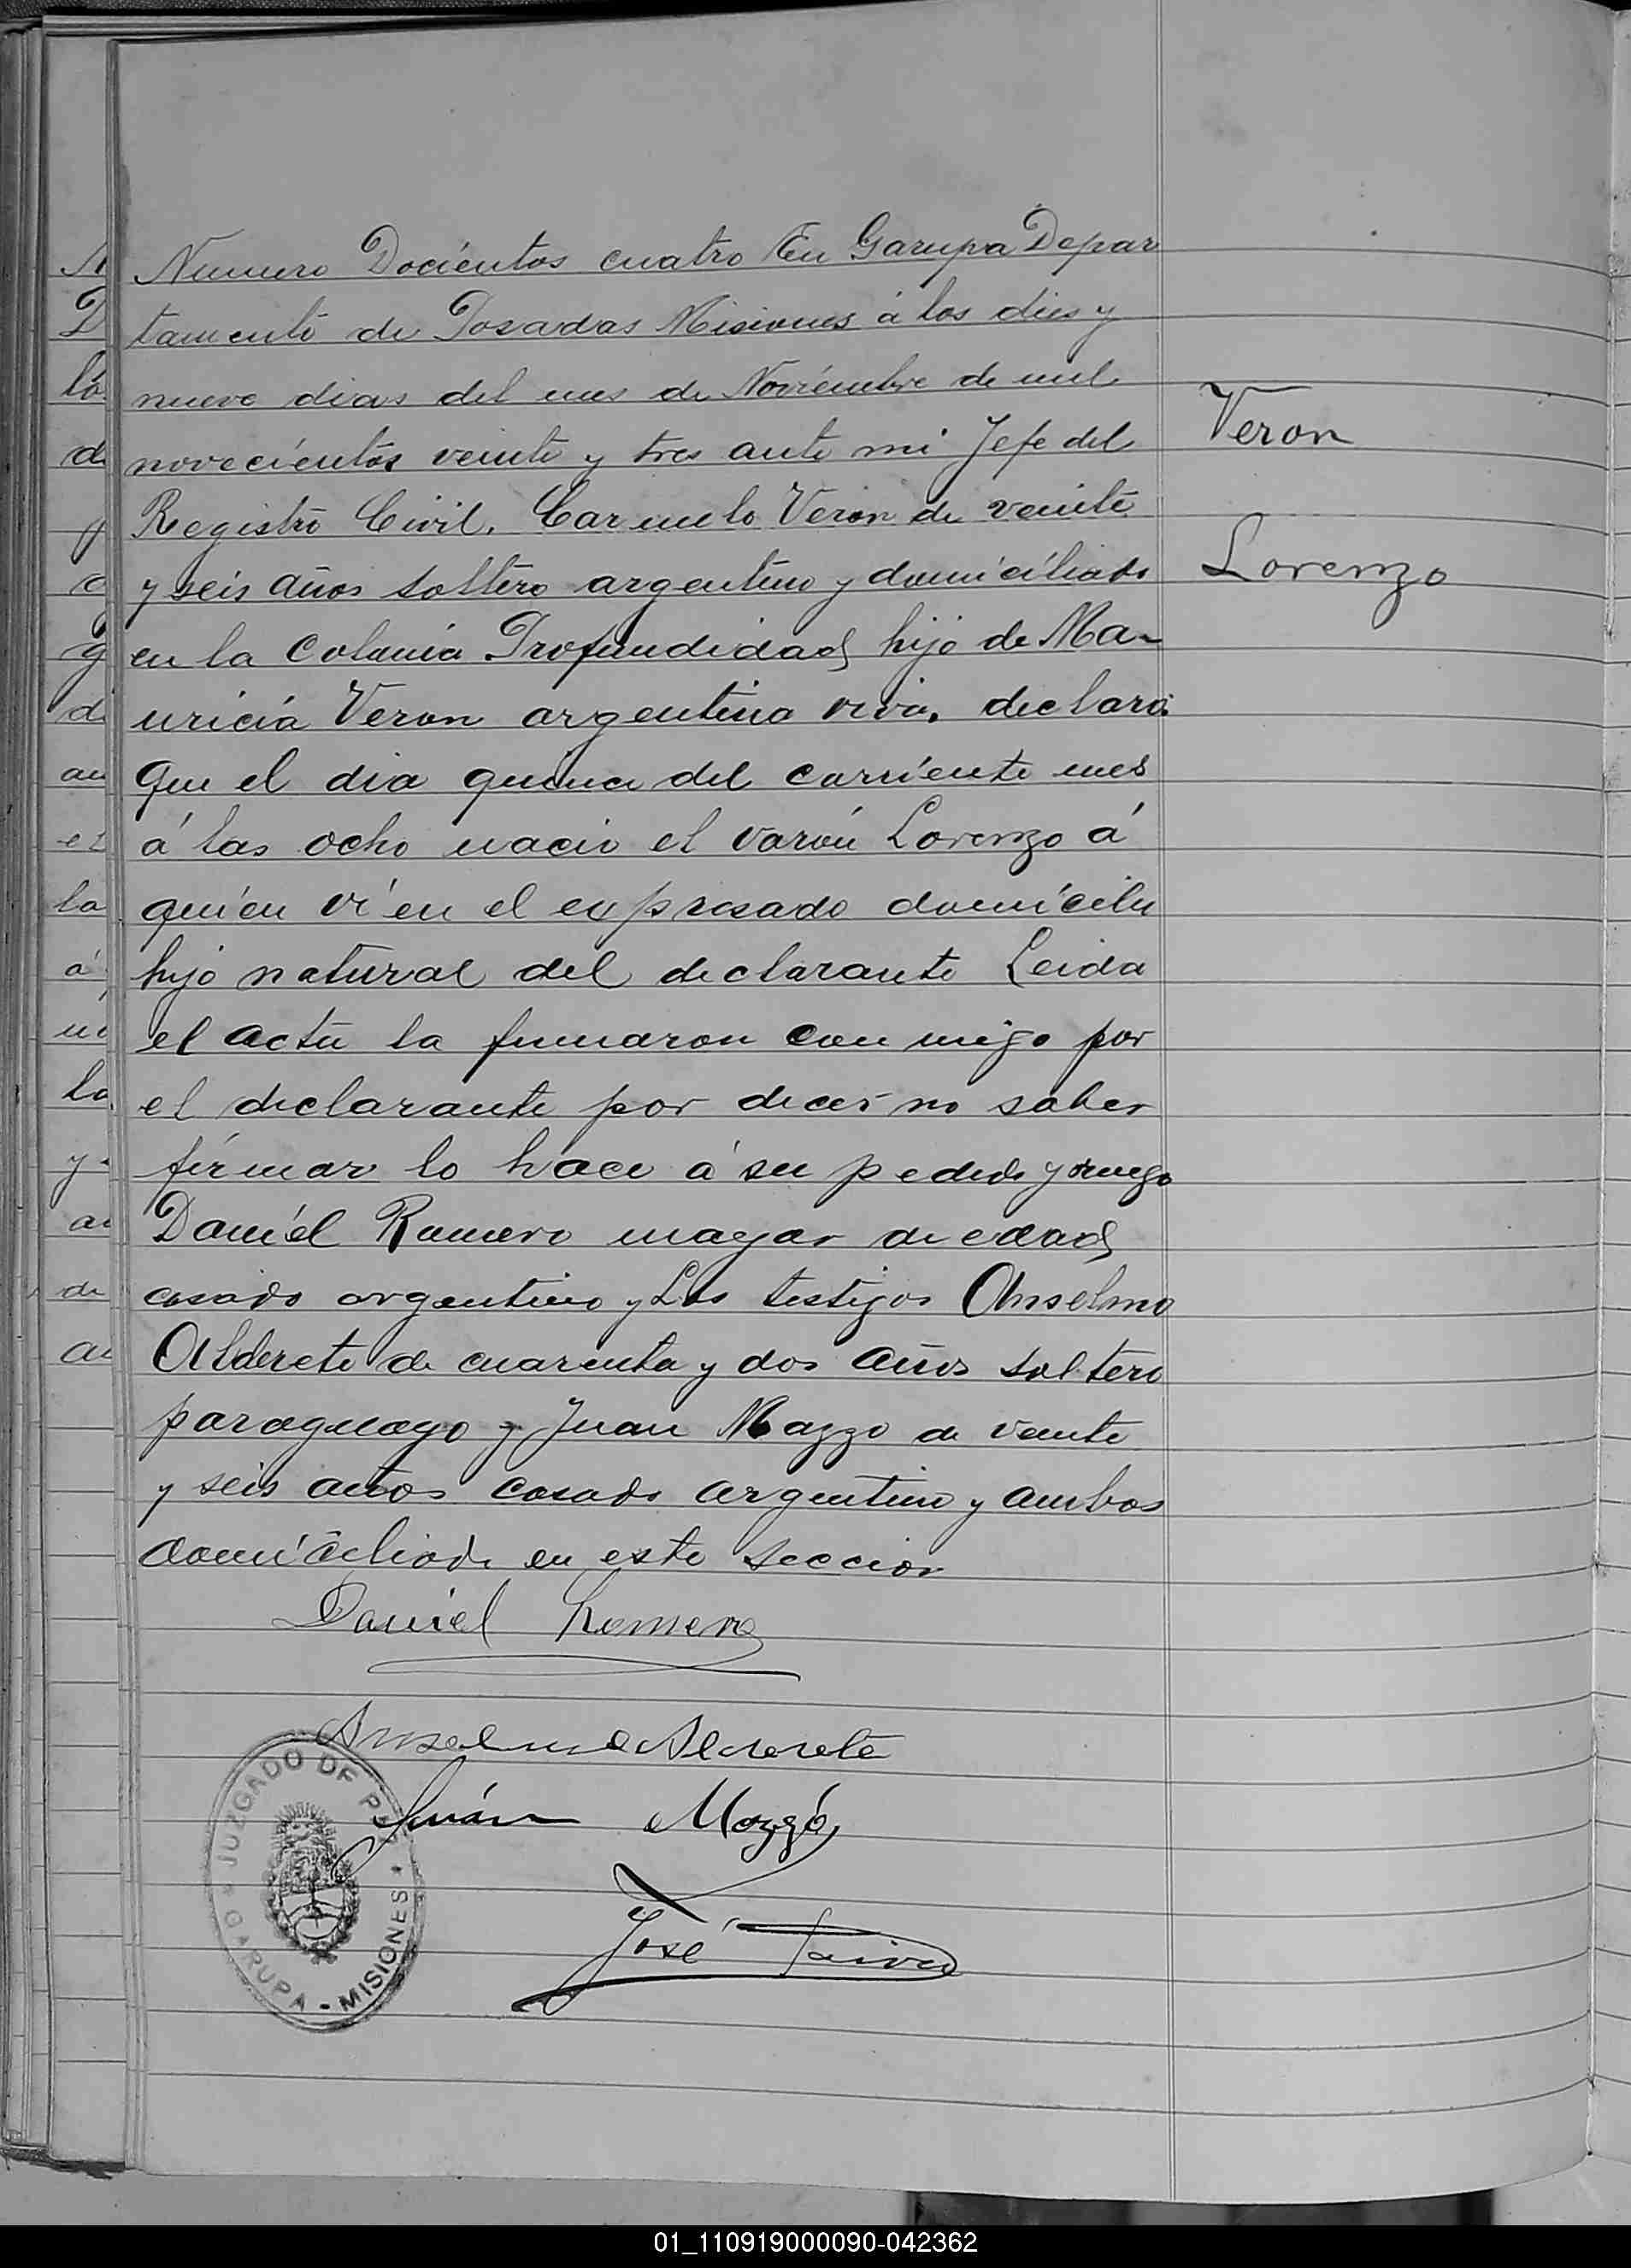 Numero Docientos cuatro En Garupa Depar
tamento de Posadas Misiones á los dies y
nueve dias del mes de Noviembre de mil
novecientos veinte y tres ante mi Jefe del
Veron
Registro Civil, Carmelo Veron de veinte
y seis años soltero argentino y domiciliado
Lorenzo
en la Colonia Profundidad hijo de Ma-
uricia Veron argentina viva. declara
que el dia quince del corriente mes
á las ocho nacio el varón Lorenzo á
quien vi en el expresado domicilio
hijo natural del declarante Leida
el acta la firmaron con migo por
el declarante por decir no saber
firmar lo hace á su pedido y ruego
Daniél Romero mayor de edad
casado argentino y Los testigos Anselmo
Alderete de cuarenta y dos años soltero
paraguayo y Juan Mazzo de veinte
y seis años casado argentino y ambos
domiciliado en este seccion
Daniel Romero
Anselmo Alderete
Juán Mozzó
José Paiva
JUZGADO DE PAZ
GARUPA - MISIONES
01_110919000090-042362